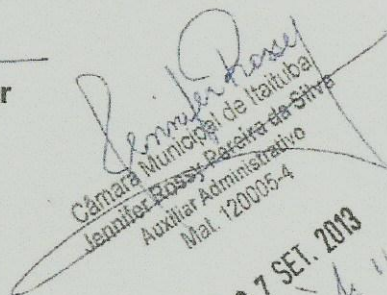 r
Jennifer Rossy
Câmara Municipal de Itaituba
Jennifer Rossy Pereira da Silva
Auxiliar Administrativo
Mat. 120005-4
7 SET. 2013